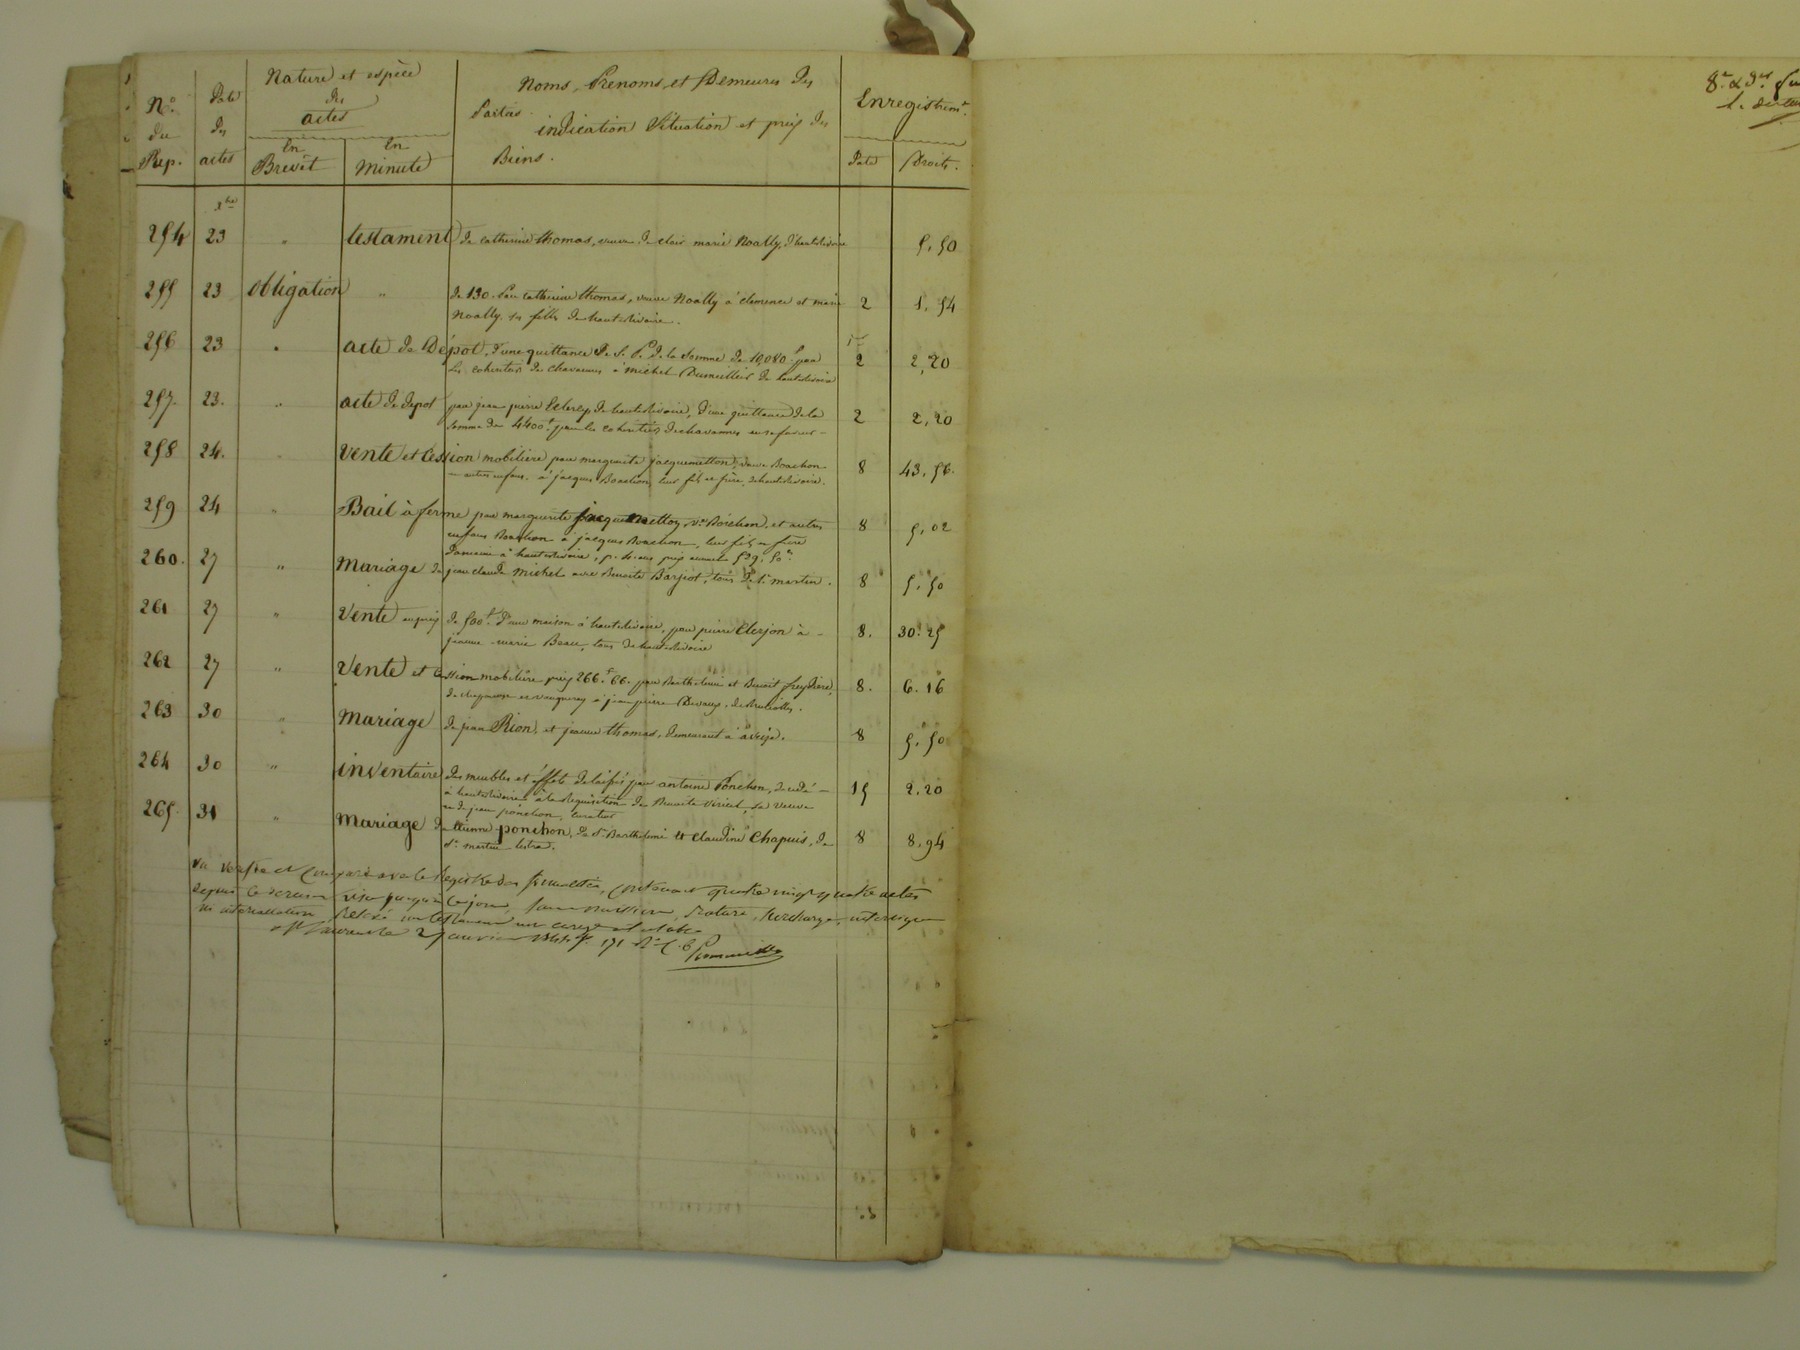 N.o du Rep.
Date des actes
Nature et espèce des actes
En Brevet
En Minute
Noms, Prenoms, et Demeures des
Parties.
indication Situation et prix des
Biens.
Enregistremt.
Date
Droits.
xbre
254 23 " testament de catherine thomas, veuve de marie Noally, d'hauterivoire 5,50
255 23 obligation " de 130. par catherine thomas, veuve Noally à clémence et marie 2 1,54
Noally ses filles de hauterivoire.
256 23 " acte de Dépot, d'une quittance de la somme de 10,080 f par 2 2,20
les cohéritiers de chavannes à michel Dumillier de hauterivoire
257. 23. " acte de depot par jean pierre de hauterivoire, d'une quittance de la 2 2,20
somme de 4400 f par les cohéritiers de chavannes en sa faveur
258 24. vente et cession mobiliere par marguerite jacquemetton, veuve Bouchon 8 43,56.
autres enfans. à jacques Bouchon, leur fils et frère, de hauterivoire.
259 24 " Bail à ferme par marguerite jacquemetton, ve. Bouchon, et autres 8 5,02
enfans Bouchon à jacques Bouchon, leur fils et frère
Domaine à hauterivoire, prix annuel 539,50
260. 27 " Mariage de jean claude Michel avec Benoite Barjot, tous de st. martin. 8 5,50
261 27 " Vente au prix de 500 f. d'une maison à hauterivoire, par pierre Clerjon à 8. 30.25
jeanne marie Beau, tous de hauterivoire
262 27 " Vente et cession mobiliere prix 266 f. 66. par Barthelemi et Benoit freydiere, 8. 6.16
de et vaugneray à jean pierre Devaux, de Brulliolles.
263 30 " Mariage de jean Rion, et jeanne thomas, demeurant à aveize. 8 5,50
264 30 " inventaire des meubles et éffets délaissés par antoine Ponchon, décédé 15 2.20
à hauterivoire à la Requisition de Benoite Viricel sa veuve
et de jean ponchon, curateur
265. 31 " Mariage de étienne ponchon, de st. Barthelemi et claudine Chapuis, de 8 8,94
st. martin
Vu vérifié et comparé avec le Registre des formalités, contenant quatre vingt quatre actes
depuis le dernier visa jusqu'à ce jour, sans omission, rature, surcharge, interligne
ni intercallation,
St Laurent le 2 janvier
8e & 3